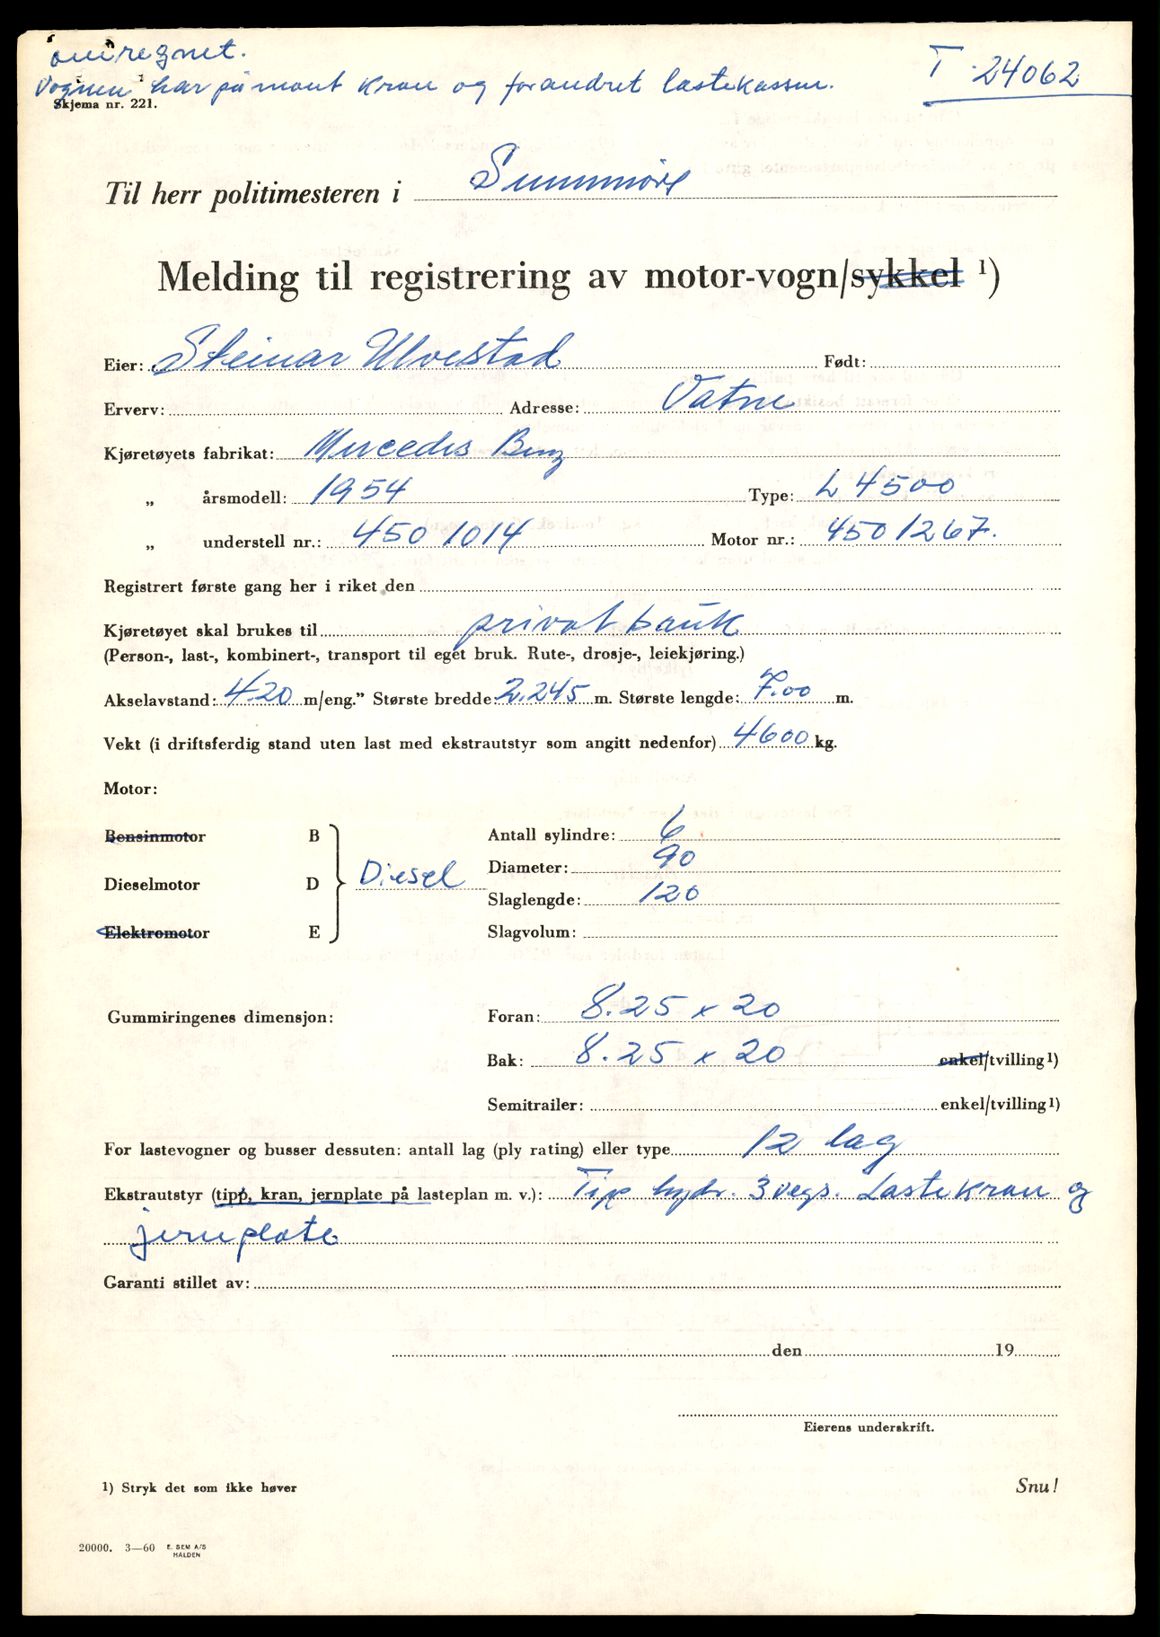 omregnet.
Vognen har påmont kran og forandret lastekassen.
T-24062
Skjema nr. 221.
Til herr politimesteren i Sunnmøre
Melding til registrering av motor-vogn/sykkel ¹)
Eier: Steinar Ulvestad Født:
Erverv: Adresse: Vatne
Kjøretøyets fabrikat: Mercedes Benz
„ årsmodell: 1954 Type: L 4500
„ understell nr.: 450 1014 Motor nr.: 450 1267.
Registrert første gang her i riket den
Kjøretøyet skal brukes til privat bruk
(Person-, last-, kombinert-, transport til eget bruk. Rute-, drosje-, leiekjøring.)
Akselavstand: 420 m/eng." Største bredde: 2.245 m. Største lengde: 7.00 m.
Vekt (i driftsferdig stand uten last med ekstrautstyr som angitt nedenfor) 4600 kg.
Motor:
Bensinmotor B
Dieselmotor D Diesel
Elektromotor E
Antall sylindre: 6
Diameter: 90
Slaglengde: 120
Slagvolum:
Gummiringenes dimensjon: Foran: 8.25 x 20
Bak: 8.25 x 20 enkel/tvilling¹)
Semitrailer: enkel/tvilling¹)
For lastevogner og busser dessuten: antall lag (ply rating) eller type 12 lag
Ekstrautstyr (tipp, kran, jernplate på lasteplan m. v.): Tipp hydr. 3 vegs. Lastekran og
jernplate
Garanti stillet av:
den 19
Eierens underskrift.
¹) Stryk det som ikke høver Snu!
20000. 3—60 E. SEM A/S
HALDEN